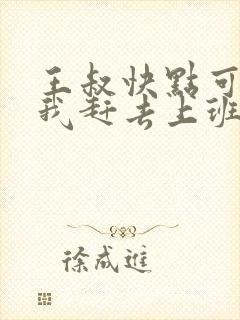 王叔快點可
我赶去上班
徐成進